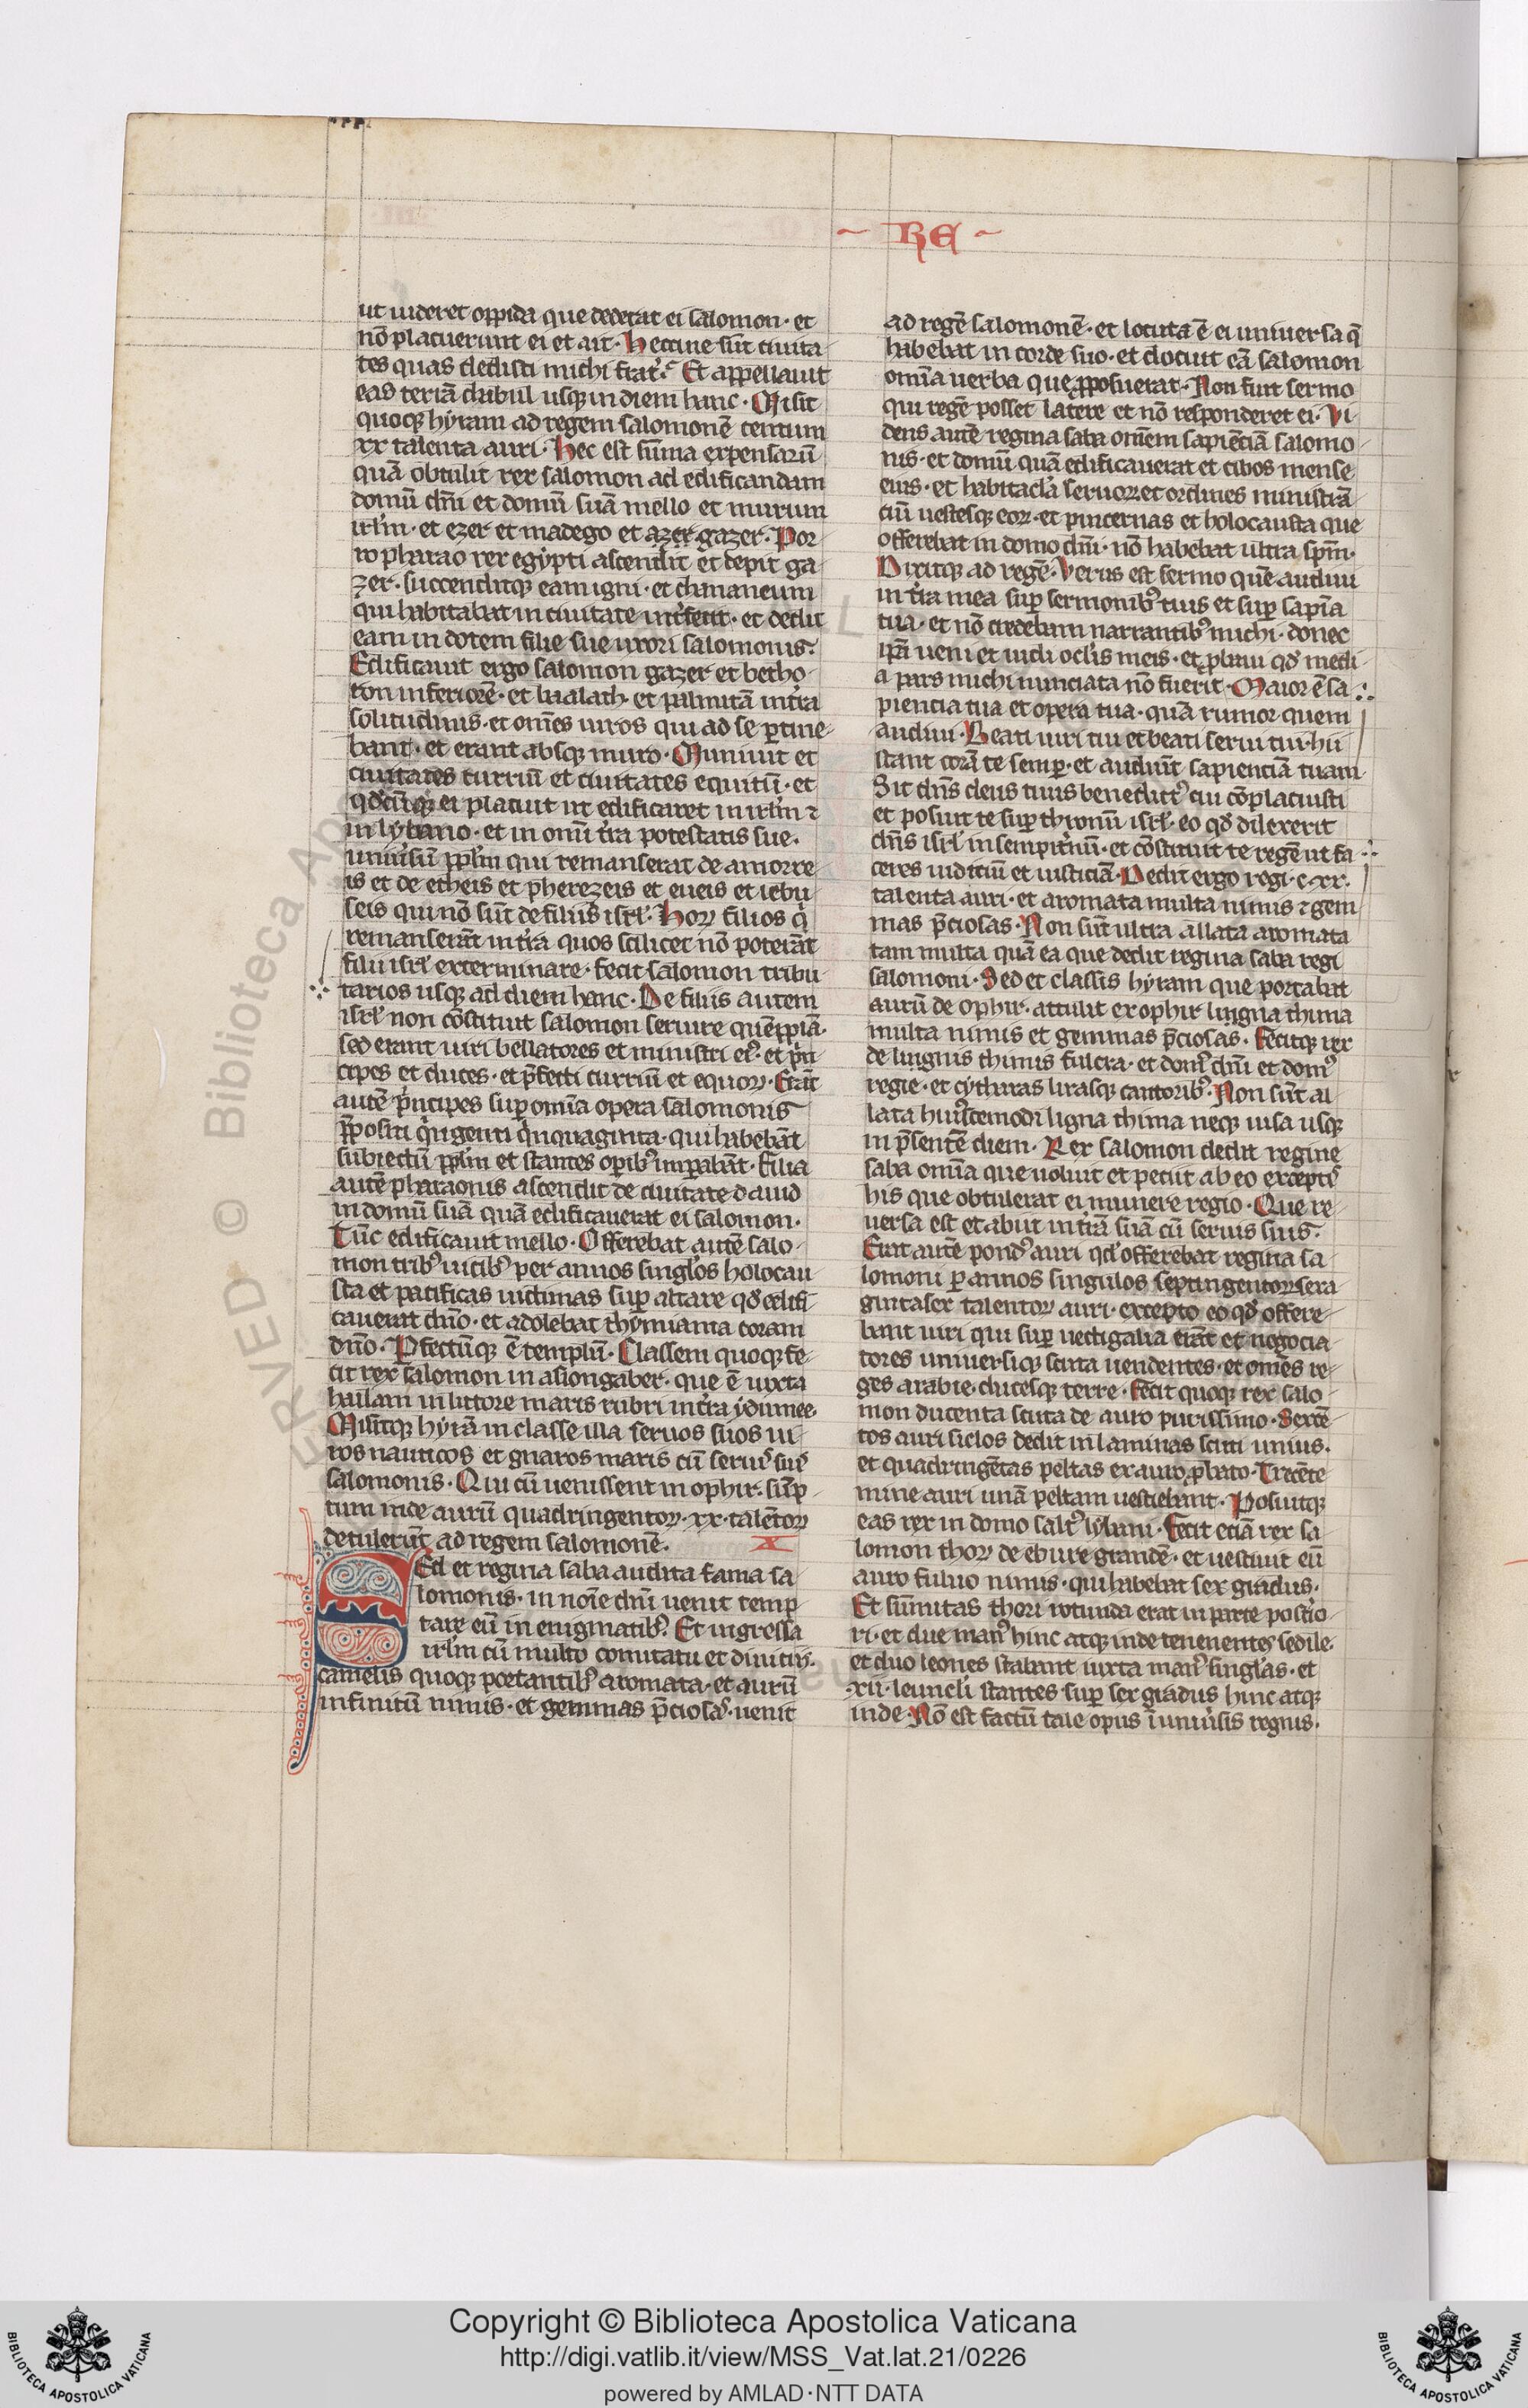 ~ RE ~
ut uideret oppida que dederat ei salomon· et
nō placuerunt ei et ait· Heccine sūt ciuita
tes quas dedisti michi frat̉· Et appellauit
eas terrā chabul usqꝫ in diem hanc· Misit
quoqꝫ hyram ad regem salomonē centum
xx talenta auri· Hec est sūma expensarū
quā obtulit rex salomon ad edificandam
domū dn̄i et domū suā mello et murum
irl̄m· et ezer et madego et azer gazer· Por
ro pharao rex egypti ascendit et cepit ga
zer· succenditqꝫ eam igni· et chananeum
qui habitabat in ciuitate int̉fecit· et dedit
eam in dotem filie sue uxori salomonis·
Edificauit ergo salomon gazer et betho-
ron inferiorē· et baalath· et palmirā in t̉ra
solitudinis· et om̄es uicos qui ad se ꝑtine-
bant· et erant absqꝫ muro· Muniuit et
ciuitates curriū et ciuitates equitū· et
qd̉cūqꝫ ei placuit ut edificaret in irl̄m ⁊
in lybano· et in omni t̉ra potestatis sue·
uniūsū ppl̄m qui remanserat de amorre-
is et de etheis et pherezeis et eueis et iebu
seis qui nō sūt de filiis isrl̄· Hoꝝ filios q̇
remanserāt in t̉ra quos scilicet nō poterāt
filii isrl̄ exterminare· fecit salomon tribu
tarios usqꝫ ad diem hanc· De filiis autem
isrl̄ non cōstituit salomon seruire quēꝗ̄piā·
sed erant uiri bellatores et ministri ei᾽· et p̉n
cipes et duces· et p̄fecti curriū et equoꝝ· Erāt
autē p̉ncipes suꝑ omīa opera salomonis
p̄positi q̇ngenti q̇nquaginta· qui habebāt
subiectū ppl̄m et stantes operib᾽ imꝑabāt· Filia
autē pharaonis ascendit de ciuitate dauid
in domū suā quā edificauerat ei salomon·
Tūc edificauit mello· Offerebat autē salo-
mon trib᾽ uicib᾽ per annos singl̉os holocau
sta et pacificas uictimas suꝑ altare qd̉ edifi
cauerat dn̄o· et adolebat thymiama coram
dn̄o· Ꝑfectūqꝫ ē templū· Classem quoqꝫ fe
cit rex salomon in asiongaber· que ē iuxta
hailam in littore maris rubri in t̉ra ydumee·
Misitqꝫ hyrā in classe illa seruos suos ui
ros nauticos et gnaros maris cū seruis suis
salomonis· Qui cū uenissent in ophir· sūp
tum inde aurū quadringentoꝝ·xx·talētoꝝ
detulerūt ad regem salomonē· X
Sed et regina saba audita fama sa
lomonis· in noīe dn̄i uenit temp
tare eū in enigmatib᾽· Et ingressa
irl̄m cū multo comitatu et diuitiis·
camelis quoqꝫ portantib᾽ aromata· et aurū
infinitū nimis· et gemmas p̄ciosas· uenit
ad regē salomonē· et locuta ē ei uniuersa q̄
habebat in corde suo· et docuit eā salomon
omīa uerba que ꝓposuerat· Non fuit sermo
qui regē posset latere et nō responderet ei· Vi
dens autē regina saba omēm sapiēciā salomo-
nis· et domū quā edificauerat et cibos mense
eius· et habitacl̉a seruoꝝ et ordines ministrā
ciū uestesqꝫ eoꝝ· et pincernas et holocausta que
offerebat in domo dn̄i· nō habebat ultra sp̄m·
Dixitqꝫ ad regē· Verus est sermo quē audiui
in t̉ra mea suꝑ sermonib᾽ tuis et suꝑ sapīa
tua· et nō credebam narrantib᾽ michi· donec
ip̄a ueni et uidi ocl̉is meis· et ꝓbaui qd̉ medi-
a pars michi nunciata nō fuerit· Maior ē sa
piencia tua et opera tua· quā rumor quem
audiui· Beati uiri tui et beati serui tui· hii
stant corā te semꝑ· et audiūt sapienciā tuam·
Sit dn̄s deus tuus benedict᾽ cui cōplacuisti
et posuit te suꝑ thronū isrl̄· eo qd̉ dilexerit
dn̄s isrl̄ in sempit̉nū· et cōstituit te regē ut fa
ceres iudiciū et iusticiā· Dedit ergo regi·c·xx·
talenta auri· et aromata multa nimis ⁊ gem
mas p̄ciosas· Non sūt ultra allata aromata
tam multa quā ea que dedit regina saba regi
salomoni· Sed et classis hyram que portabat
aurū de ophir· attulit ex ophir lingna thima
multa nimis et gemmas p̄ciosas· Fecitqꝫ rex
de lingnis thimis fulcra· et dom᾽ dn̄i et dom᾽
regie· et cytharas lirasqꝫ cantorib᾽· Non sūt al
lata hui᾽scemodi ligna thima neqꝫ uisa usqꝫ
in p̄sentē diem· Rex salomon dedit regine
saba omīa que uoluit et petiit ab eo exceptis
his que obtulerat ei munere regio· Que re-
uersa est et abiit in t̉rā suā cū seruis suis·
Erat autē pond᾽ auri qd̉ offerebat regina sa
lomoni ꝑ annos singulos septingentoꝝ sexa
gintasex talentoꝝ auri· excepto eo qd̉ offere-
bant uiri qui suꝑ uectigalia erāt et negocia-
tores uniuersiqꝫ scuta uendentes· et om̄es re-
ges arabie· ducesqꝫ terre· Fecit quoqꝫ rex salo-
mon ducenta scuta de auro purissimo· Sexcē-
tos auri siclos dedit in laminas scuti unius·
et quadringētas peltas ex auro ꝓbato· Trecēte
mine auri unā peltam uestiebant· Posuitqꝫ
eas rex in domo salt᾽ lybani· Fecit eciā rex sa-
lomon thoꝝ de ebure grandē· et uestiuit eū
auro fuluo nimis· qui habebat sex gradus·
Et sūmitas thori rotunda erat in parte post̉io-
ri· et due man᾽ hinc atqꝫ inde tenenentes sedile·
et duo leones stabant iuxta man᾽ singl̉as· et
·xii· leuncl̉i stantes suꝑ sex gradus hinc atqꝫ
inde· Nō est factū tale opus ī uniūsis regnis·
Copyright © Biblioteca Apostolica Vaticana
http://digi.vatlib.it/view/MSS_Vat.lat.21/0226
powered by AMLAD·NTT DATA
BIBLIOTECA APOSTOLICA VATICANA
BIBLIOTECA APOSTOLICA VATICANA